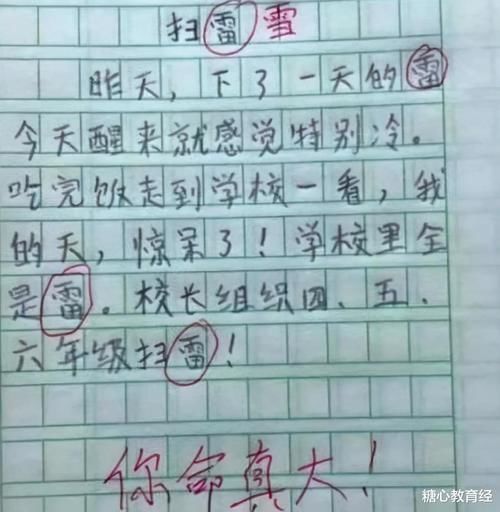 扫雷雪
昨天，下了一天的雷
今天醒来就感觉特别冷。
吃完饭走到学校一看，我
的天，惊呆了！学校里全
是雷。校长组织四、五、
六年级扫雷！
你命真大！
糖心教育经